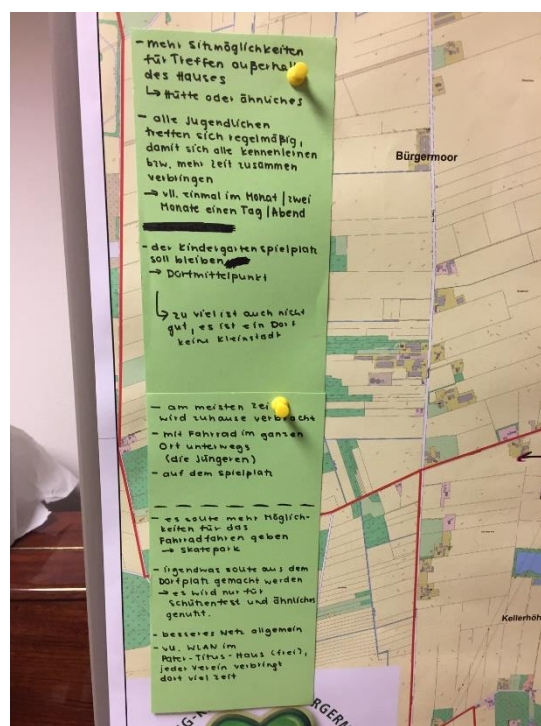 - mehr Sitzmöglichkeiten
für Treffen außerhal
des Hauses
↳ Hütte oder ähnliches
- alle Jugendlichen
treffen sich regelmäßig,
damit sich alle kennenlernen
bzw. mehr Zeit zusammen
verbringen
→ vll. einmal im Monat / zwei
Monate einen Tag / Abend
- der Kindergartenspielplatz
soll bleiben
→ Dorfmittelpunkt
↳ zu viel ist auch nicht
gut, es ist ein Dorf
keine Kleinstadt
- am meisten Zei
wird zuhause verbracht
- mit Fahrrad im ganzen
Ort unterwegs
(die Jüngeren)
- auf dem Spielplatz
- es sollte mehr Möglich-
keiten für das
Fahrradfahren geben
→ Skatepark
- irgendwas sollte aus dem
Dorfplatz gemacht werden
→ es wird nur für
Schützenfest und ähnliches
genutzt.
- besseres Netz allgemein
- vll. WLAN im
Pater-Titus-Haus (frei),
jeder Verein verbringt
dort viel Zeit
Bürgermoor
Kellerhöh